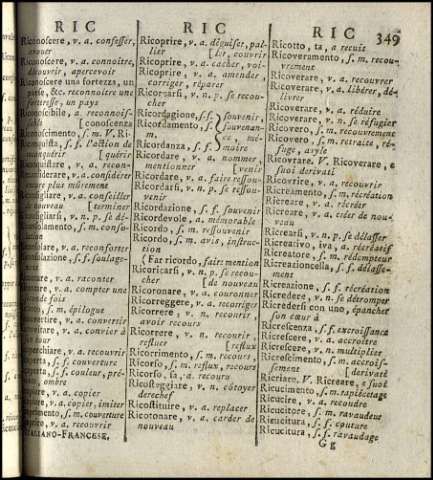 RIC
RIC
RIC
349
Riconoscere, v. a. confesser,
avouer
Riconoscere, v. a. connoître,
découvrir, apercevoir
Riconoscere una fortezza, un
paese, &c. reconnoître une
forteresse, un pays
Riconoscibile, a. reconnois-
sable [conscienza
Riconoscimento, s. m. V. Ri-
Riconquista, s. f. l'action de
reconquérir [quérir
Riconquistare, v. a. recon-
Riconsiderare, v. a. considérer
encore plus mûrement
Riconsigliare, v. a. conseiller
de nouveau [terminer
Riconsigliarsi, v. n. p. se dé-
Riconsolamento, s. m. conso-
lation
Riconsolare, v. a. reconforter
Riconsolazione, s. f. soulage-
ment
v. a. raconter
v. a. compter une
de fois
s. m. épilogue
v. a. convertir
v. a. convier à
un tour
v. a. recouvrir
s. f. couverture
s. f. couleur, pré-
texte, ombre
v. a. copier
v. a. copier, imiter
s. m. couverture
Ricoprire, v. a. couvrir
ITALIANO-FRANCESE,
Ricoprire, v. a. déguiser, pal-
lier [ler, couvrir
Ricoprire, v. a. cacher, voi-
Ricoprire, v. a. amender,
corriger, réparer
Ricorarsi, v. n. p. se recou-
cher
Ricordagione, s. f. souvenir,
Ricordamento, s. souvenan-
m. ce, mé-
Ricordanza, s. f. moire
Ricordare, v. a. nommer,
mentionner [venir
Ricordare, v. a. faire ressou-
Ricordarsi, v. n. p. se ressou-
venir
Ricordazione, s. f. souvenir
Ricordevole, a. mémorable
Ricordo, s. m. ressouvenir
Ricordo, s. m. avis, instruc-
tion
[Far ricordo, faire mention
Ricoricarsi, v. n. p. se recou-
cher [de nouveau
Ricoronare, v. a. couronner
Ricorreggere, v. a. recorriger
Ricorrere, v. n. recourir,
avoir recours
Ricorrere, v. n. recourir,
refluer [reflux
Ricorrimento, s. m. recours,
Ricorso, s. m. reflux, recours
Ricorso, sa, a. recouru
Ricosteggiare, v. n. côtoyer
derechef
Ricostituire, v. a. replacer
Ricotonare, v. a. carder de
nouveau
Ricotto, ta, a recuit
Ricoveramento, s. m. recou-
vrement
Ricoverare, v. a. recouvrer
Ricoverare, v. a. libérer, dé-
livrer
Ricoverare, v. a. réduire
Ricoverare, v. n. se réfugier
Ricovero, s. m. recouvrement
Ricovero, s. m. retraite, ré-
fuge, asyle
Ricovrare. V. Ricoverare, e
suoi derivati
Ricovrire, v. a. recouvrir
Ricreamento, s. m. récréation
Ricreare, v. a. récréer
Ricreare, v. a. créer de nou-
veau
Ricrearsi, v. n. p. se délasser
Ricreativo, iva, a. récréatif
Ricreatore, s. m. rédempteur
Ricreazioncella, s. f. délasse-
ment
Ricreazione, s. f. récréation
Ricredere, v. n. se détromper
Ricredersi con uno, épancher
son cœur à
Ricrescenza, s. f. excroissance
Ricrescere, v. a. accroître
Ricrescere, v. n. multiplier
Ricrescimento, s. m. accrois-
sement [derivati
Ricriare, V. Ricreare, e suoi
Ricucimento, s. m. rapiécetage
Ricucire, v. a. recoudre
Ricucitore, s. m. ravaudeur
Ricucitura, s. f. couture
Ricucitura, s. f. ravaudage
G g